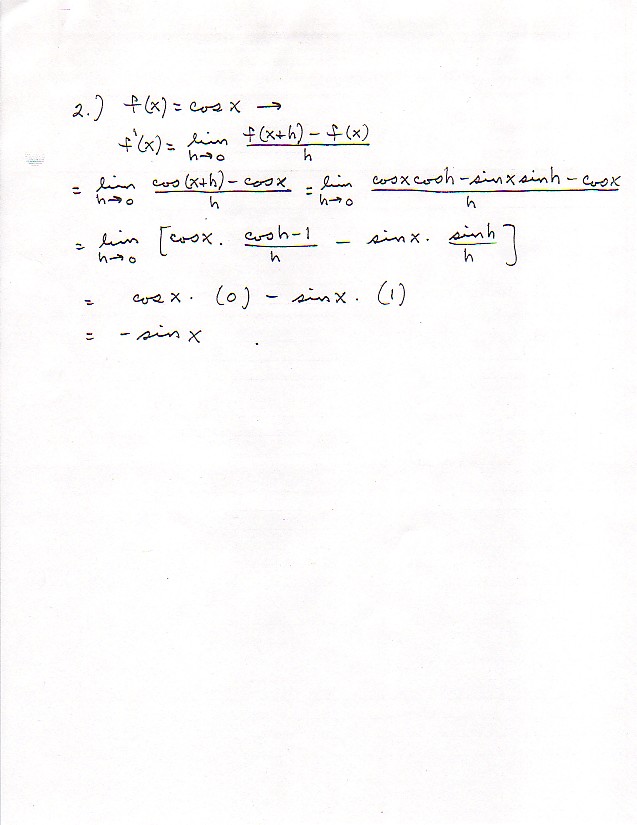 2.) f(x) = cos x →
f'(x) = lim h→0 (f(x+h) - f(x))/h
= lim h→0 (cos(x+h) - cosx)/h = lim h→0 (cosx cosh - sinx sinh - cosx)/h
= lim h→0 [cosx · (cosh-1)/h - sinx · (sinh)/h]
= cosx · (0) - sinx · (1)
= - sinx